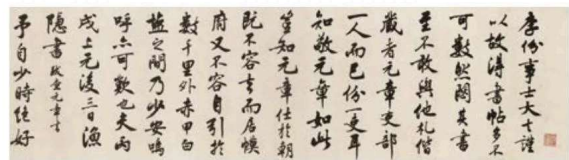 李份事士大夫謹
以故得書帖多不
可數然閱其書
至不敢與他札偕
藏者元章吏部
一人而已份一耳
知敬元章如此
豈知元章仕於朝
既不容去而居幙
府又不容自引於
數千里外赤甲白
鹽之間乃少安嗚
呼亦可歎也夫丙
戌上元後三日漁
隱書
予自少時絕好